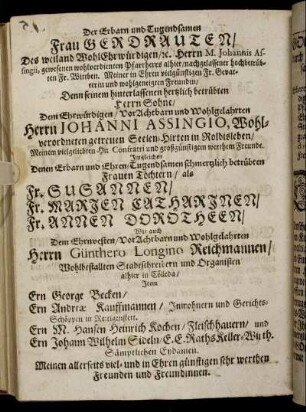 Der Erbarn und Tugendsamen
Frau GERDRAUTEN/
Des weiland WohlEhrwürdigen/ꝛc. Herrn M. Johannis As-
singii, gewesenen wohlverdienten Pfarrherrn alhier/nachgelassener hochbetrüb-
ten Fr. Witben. Meiner in Ehren vielgünstigen Fr. Gevat-
terin und wohlgeneigten Freundin/
Denn seinem hinterlassenen hertzlich betrübten
Herrn Sohne/
Dem Ehrwürdigen/VorAchtbarn und Wohlgelahrten
Herrn JOHANNI ASSINGIO, Wohl-
verordneten getreuen Seelen-Hirten in Roldisleben/
Meinem vielgeliebten Hn. Confratri und großgünstigen werthem Freunde.
Ingleichen
Denen Erbarn und Ehren-Tugendsamen schmertzlich betrübten
Frauen Töchtern/ als
Fr. SUSANNEN/
Fr. MARIEN CATHARINEN/
Fr. ANNEN DOROTHEEN/
Wie auch
Dem Ehrnvesten/VorAchtbarn und Wohlgelahrten
Herrn Günthero Longino Reichmannen/
Wohlbestallten Stadtschreibern und Organisten
alhier in Cölleda/
Item
Ern George Becken/
Ern Andreæ Kauffmannen/ Inwohnern und Gerichts-
Schöppen in
Ern M. Hansen Heinrich Kochen/Fleischhauern/ und
Ern Johann Wilhelm Sideln/E.E.RathsKeller-Wirth.
Sämptlichen Eydamen.
Meinen allerseits viel- und in Ehren günstigen sehr werthen
Freunden und Freundinnen.